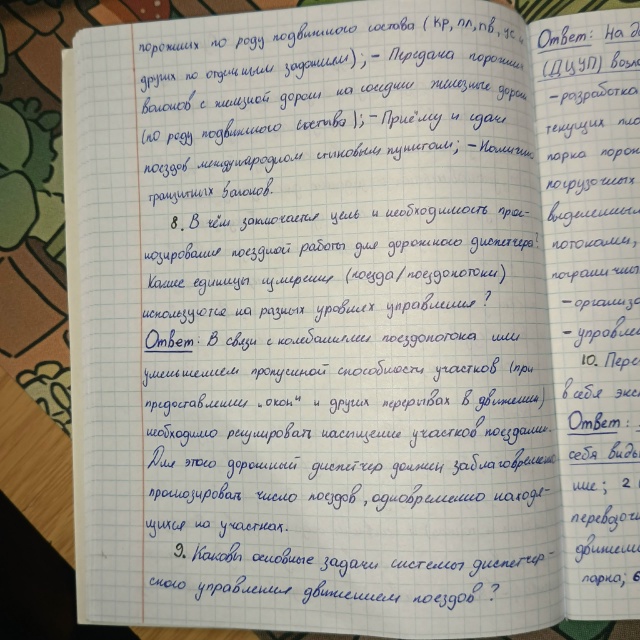 порожних по роду подвижного состава (КР, ПЛ, ПВ, УС и
других по отдельным заданиям); – Передача порожних
вагонов с железной дороги на соседние железные дороги
(по роду подвижного состава); – Приёму и сдаче
поездов международном стыковым пунктам; – Наличию
транзитных вагонов.
8. В чём заключается цель и необходимость прог-
нозирования поездной работы для дорожного диспетчера?
Какие единицы измерения (поезда/поездопотоки)
используются на разных уровнях управления?
Ответ: В связи с колебаниями поездопотока или
уменьшением пропускной способности участков (при
предоставлении „окон" и других перерывах в движении)
необходимо регулировать насыщение участков поездами.
Для этого дорожный диспетчер должен заблаговременно
прогнозировать число поездов, одновременно находя-
щихся на участках.
9. Каковы основные задачи системы диспетчер-
ского управления движением поездов?
Ответ: На
(ДЦУП) возло
– разработка
текущих пла
парка порож
погрузочных
выделенным
потоками,
пограничны
– организа
– управлен
10. Пере
в себя экс
Ответ:
себя виды
ние; 2
перевозоч
движени
парка; 6